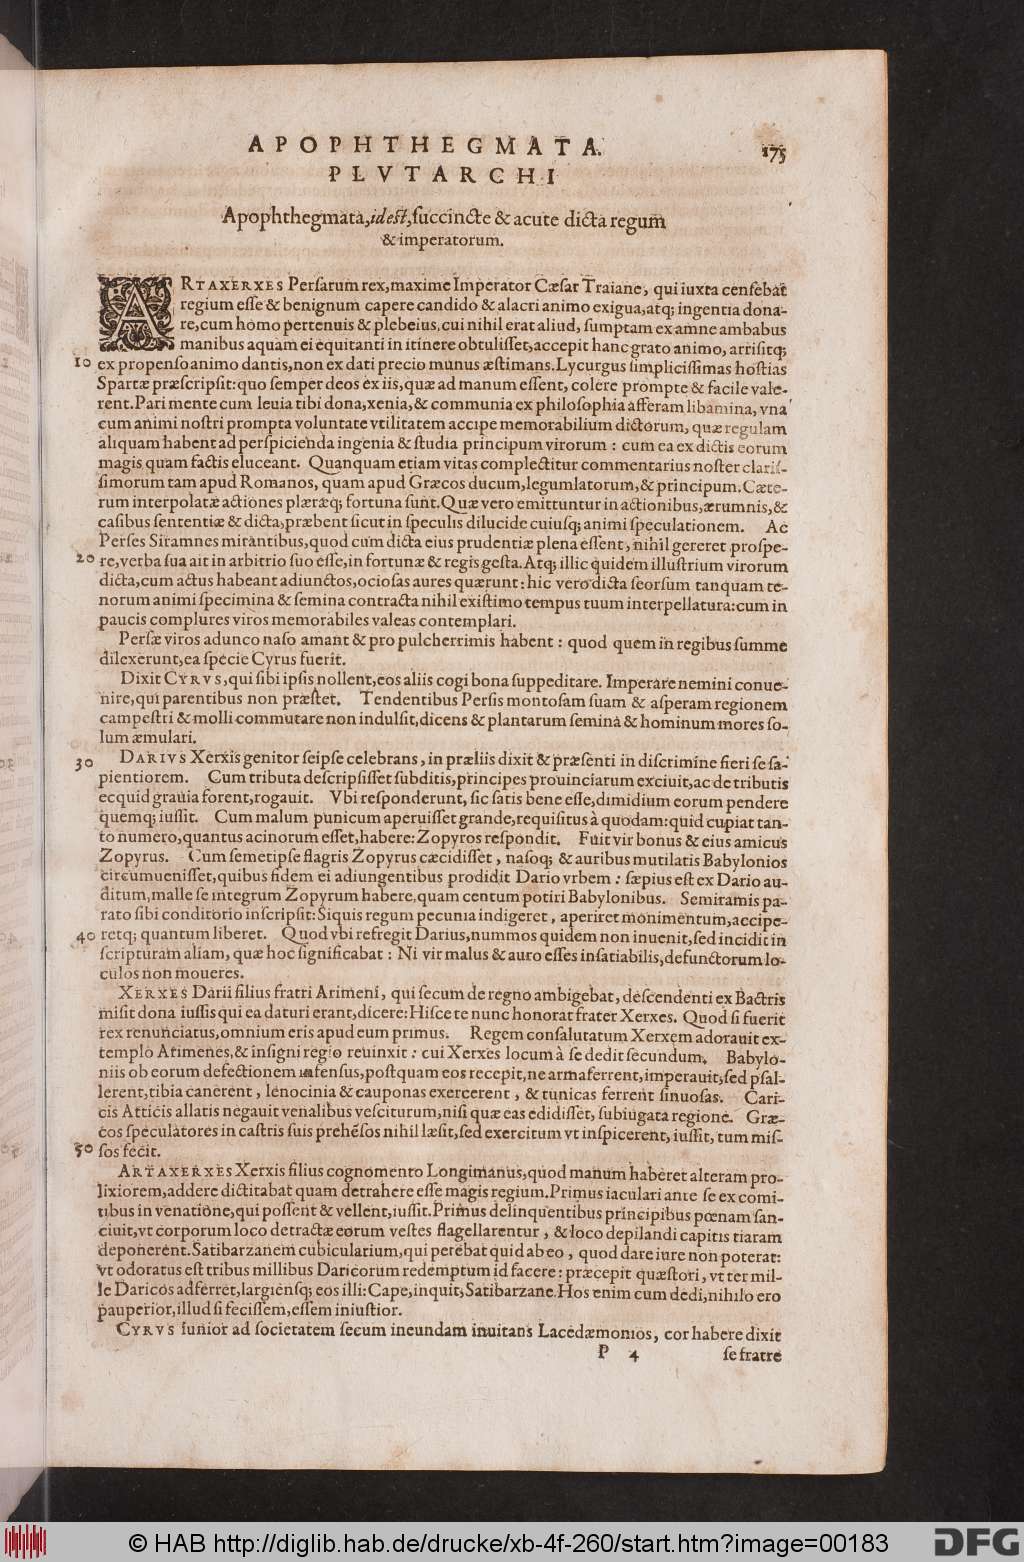 APOPHTHEGMATA.
175
PLVTARCHI
Apophthegmata, id est, ſuccincte & acute dicta regum
& imperatorum.
ARTAXERXES Perſarum rex, maxime Imperator Cæſar Traiane, qui iuxta cenſebat
regium eſſe & benignum capere candido & alacri animo exigua, atq; ingentia dona-
re, cum homo pertenuis & plebeius, cui nihil erat aliud, ſumptam ex amne ambabus
manibus aquam ei equitanti in itinere obtuliſſet, accepit hanc grato animo, arriſitq;
10 ex propenſo animo dantis, non ex dati precio munus æſtimans. Lycurgus ſimpliciſſimas hoſtias
Spartæ præſcripſit: quo ſemper deos ex iis, quæ ad manum eſſent, colere prompte & facile vale-
rent. Pari mente cum leuia tibi dona, xenia, & communia ex philoſophia afferam libamina, vna
cum animi noſtri prompta voluntate vtilitatem accipe memorabilium dictorum, quæ regulam
aliquam habent ad perſpicienda ingenia & ſtudia principum virorum : cum ea ex dictis eorum
magis quam factis eluceant. Quanquam etiam vitas complectitur commentarius noſter clariſ-
ſimorum tam apud Romanos, quam apud Græcos ducum, legumlatorum, & principum. Cæte-
rum interpolatæ actiones plæræq; fortuna ſunt. Quæ vero emittuntur in actionibus, ærumnis, &
caſibus ſententiæ & dicta, præbent ſicut in ſpeculis dilucide cuiuſq; animi ſpeculationem. Ac
Perſes Siramnes mirantibus, quod cum dicta eius prudentiæ plena eſſent, nihil gereret proſpe-
20 re, verba ſua ait in arbitrio ſuo eſſe, in fortunæ & regis geſta. Atq; illic quidem illuſtrium virorum
dicta, cum actus habeant adiunctos, ocioſas aures quærunt: hic vero dicta ſeorſum tanquam te-
norum animi ſpecimina & ſemina contracta nihil exiſtimo tempus tuum interpellatura: cum in
paucis complures viros memorabiles valeas contemplari.
Perſæ viros adunco naſo amant & pro pulcherrimis habent : quod quem in regibus ſumme
dilexerunt, ea ſpecie Cyrus fuerit.
Dixit CYRVS, qui ſibi ipſis nollent, eos aliis cogi bona ſuppeditare. Imperare nemini conue-
nire, qui parentibus non præſtet. Tendentibus Perſis montoſam ſuam & aſperam regionem
campeſtri & molli commutare non indulſit, dicens & plantarum ſemina & hominum mores ſo-
lum æmulari.
30 DARIVS Xerxis genitor ſeipſe celebrans, in præliis dixit & præſenti in diſcrimine fieri ſe ſa-
pientiorem. Cum tributa deſcripſiſſet ſubditis, principes prouinciarum exciuit, ac de tributis
ecquid grauia forent, rogauit. Vbi reſponderunt, ſic ſatis bene eſſe, dimidium eorum pendere
quemq; iuſſit. Cum malum punicum aperuiſſet grande, requiſitus à quodam: quid cupiat tan-
to numero, quantus acinorum eſſet, habere: Zopyros reſpondit. Fuit vir bonus & eius amicus
Zopyrus. Cum ſemetipſe flagris Zopyrus cæcidiſſet, naſoq; & auribus mutilatis Babylonios
circumueniſſet, quibus fidem ei adiungentibus prodidit Dario vrbem : ſæpius eſt ex Dario au-
ditum, malle ſe integrum Zopyrum habere, quam centum potiri Babylonibus. Semiramis pa-
rato ſibi conditorio inſcripſit: Siquis regum pecunia indigeret, aperiret monimentum, accipe-
40 retq; quantum liberet. Quod vbi refregit Darius, nummos quidem non inuenit, ſed incidit in
ſcripturam aliam, quæ hoc ſignificabat : Ni vir malus & auro eſſes inſatiabilis, defunctorum lo-
culos non moueres.
XERXES Darii filius fratri Arimeni, qui ſecum de regno ambigebat, deſcendenti ex Bactris
miſit dona iuſſis qui ea daturi erant, dicere: Hiſce te nunc honorat frater Xerxes. Quod ſi fuerit
rex renunciatus, omnium eris apud eum primus. Regem conſalutatum Xerxem adorauit ex-
templo Arimenes, & inſigni regio reuinxit : cui Xerxes locum à ſe dedit ſecundum. Babylo-
niis ob eorum defectionem infenſus, poſtquam eos recepit, ne arma ferrent, imperauit, ſed pſal-
lerent, tibia canerent, lenocinia & cauponas exercerent, & tunicas ferrent ſinuoſas. Cari-
cis Atticis allatis negauit venalibus veſciturum, niſi quæ eas edidiſſet, ſubiugata regione. Græ-
cos ſpeculatores in caſtris ſuis prehēſos nihil læſit, ſed exercitum vt inſpicerent, iuſſit, tum miſ-
50 ſos fecit.
ARTAXERXES Xerxis filius cognomento Longimanus, quod manum haberet alteram pro-
lixiorem, addere dictitabat quam detrahere eſſe magis regium. Primus iaculari ante ſe ex comi-
tibus in venatione, qui poſſent & vellent, iuſſit. Primus delinquentibus principibus pœnam ſan-
ciuit, vt corporum loco detractæ eorum veſtes flagellarentur, & loco depilandi capitis tiaram
deponerent. Satibarzanem cubicularium, qui petebat quid ab eo, quod dare iure non poterat:
vt odoratus eſt tribus millibus Daricorum redemptum id facere: præcepit quæſtori, vt ter mil-
le Daricos adferret, largiēnſq; eos illi: Cape, inquit, Satibarzane. Hos enim cum dedi, nihilo ero
pauperior, illud ſi feciſſem, eſſem iniuſtior.
CYRVS iunior ad ſocietatem ſecum ineundam inuitans Lacedæmonios, cor habere dixit
P 4 ſe fratre
© HAB http://diglib.hab.de/drucke/xb-4f-260/start.htm?image=00183
DFG